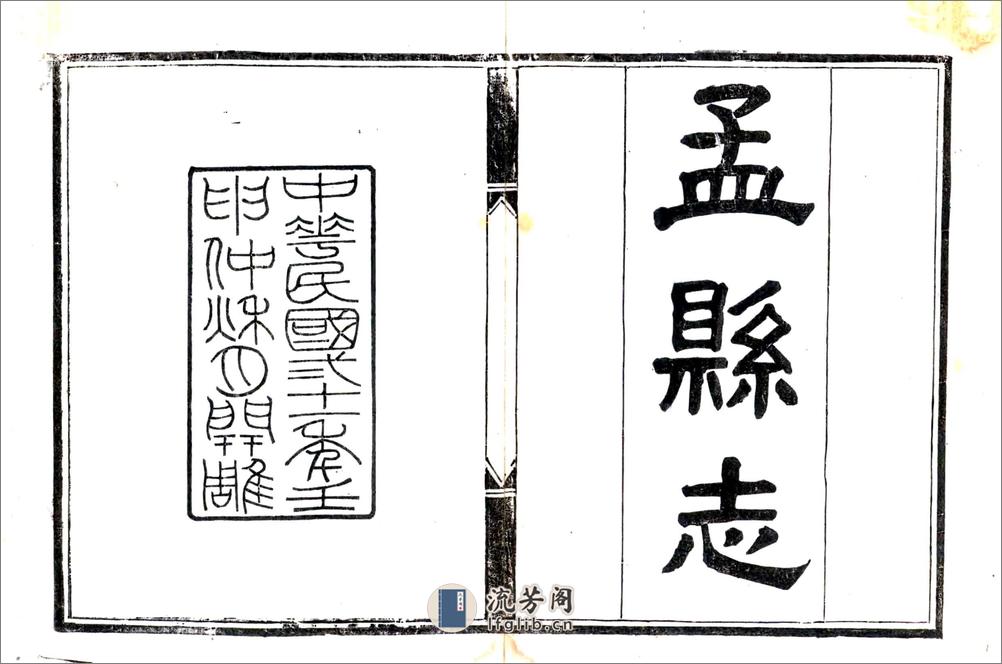 孟縣志
中華民國弍十一年壬
申仲秋月開雕
流芳阁
lfglib.cn